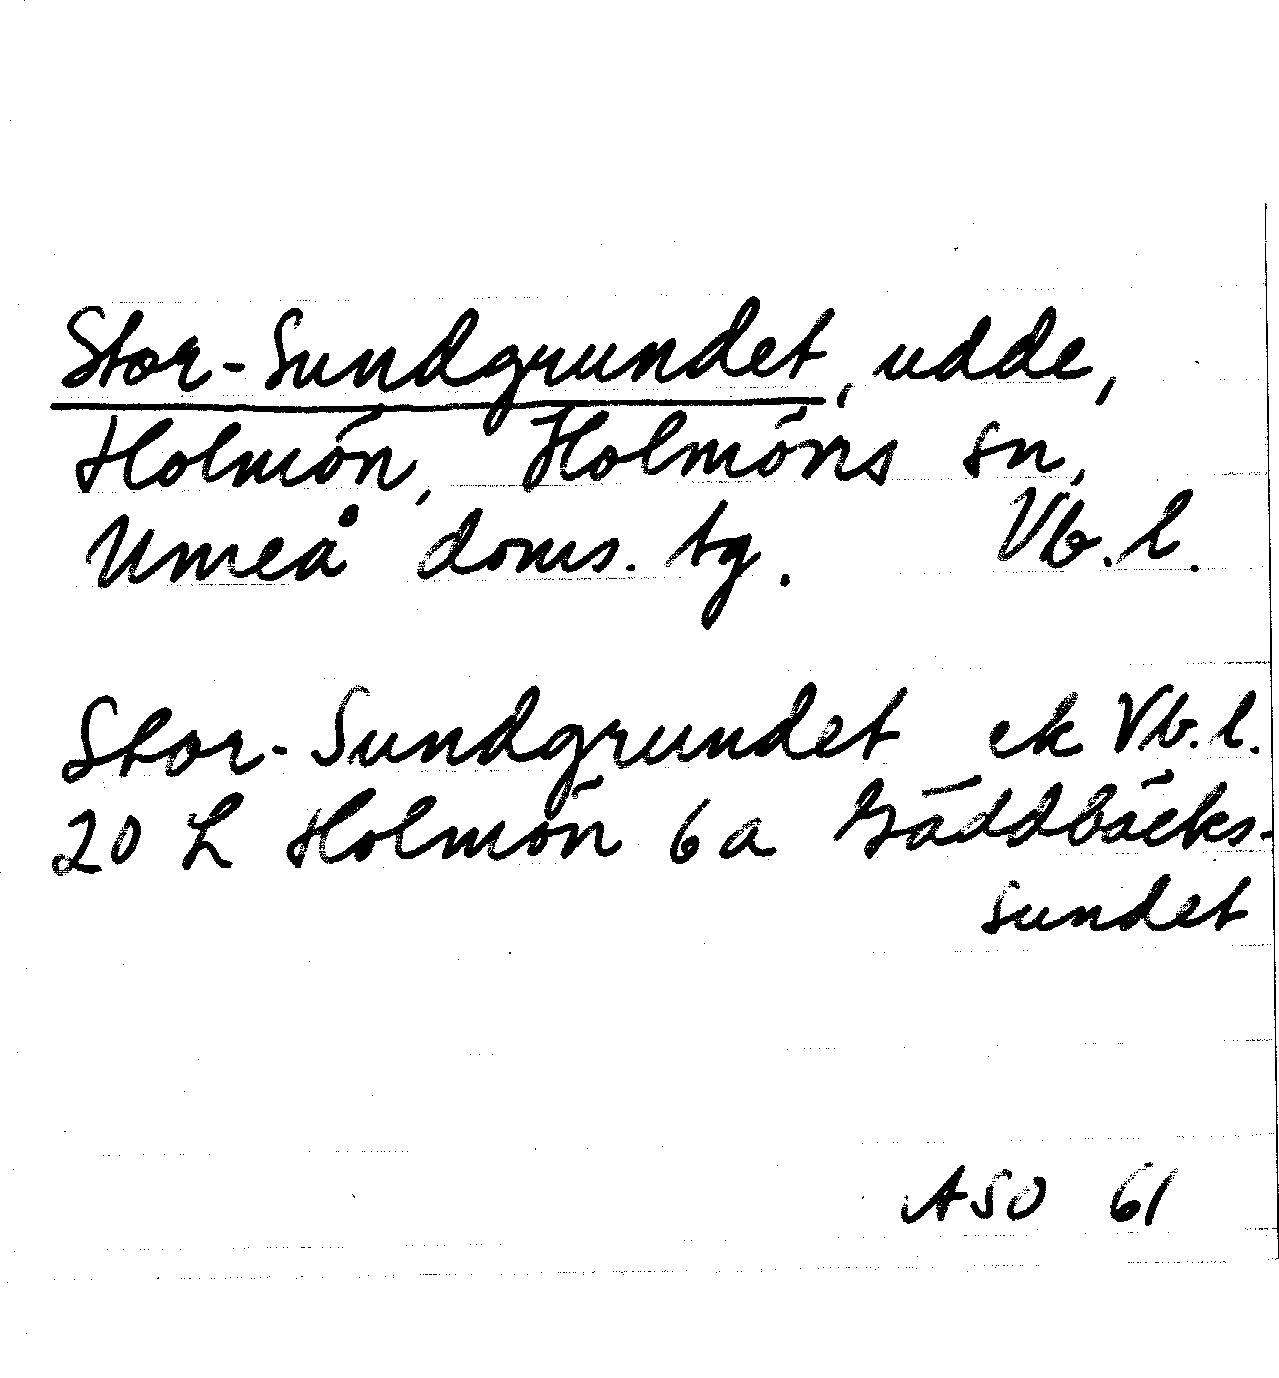 Stor-Sundgrundet, udde,
Holmön, Holmöns sn,
Umeå doms. tg. Vb. l.
Stor-Sundgrundet ek Vb. l.
20 L Holmön 6a Gäddbäcks-
sundet
ASO 61